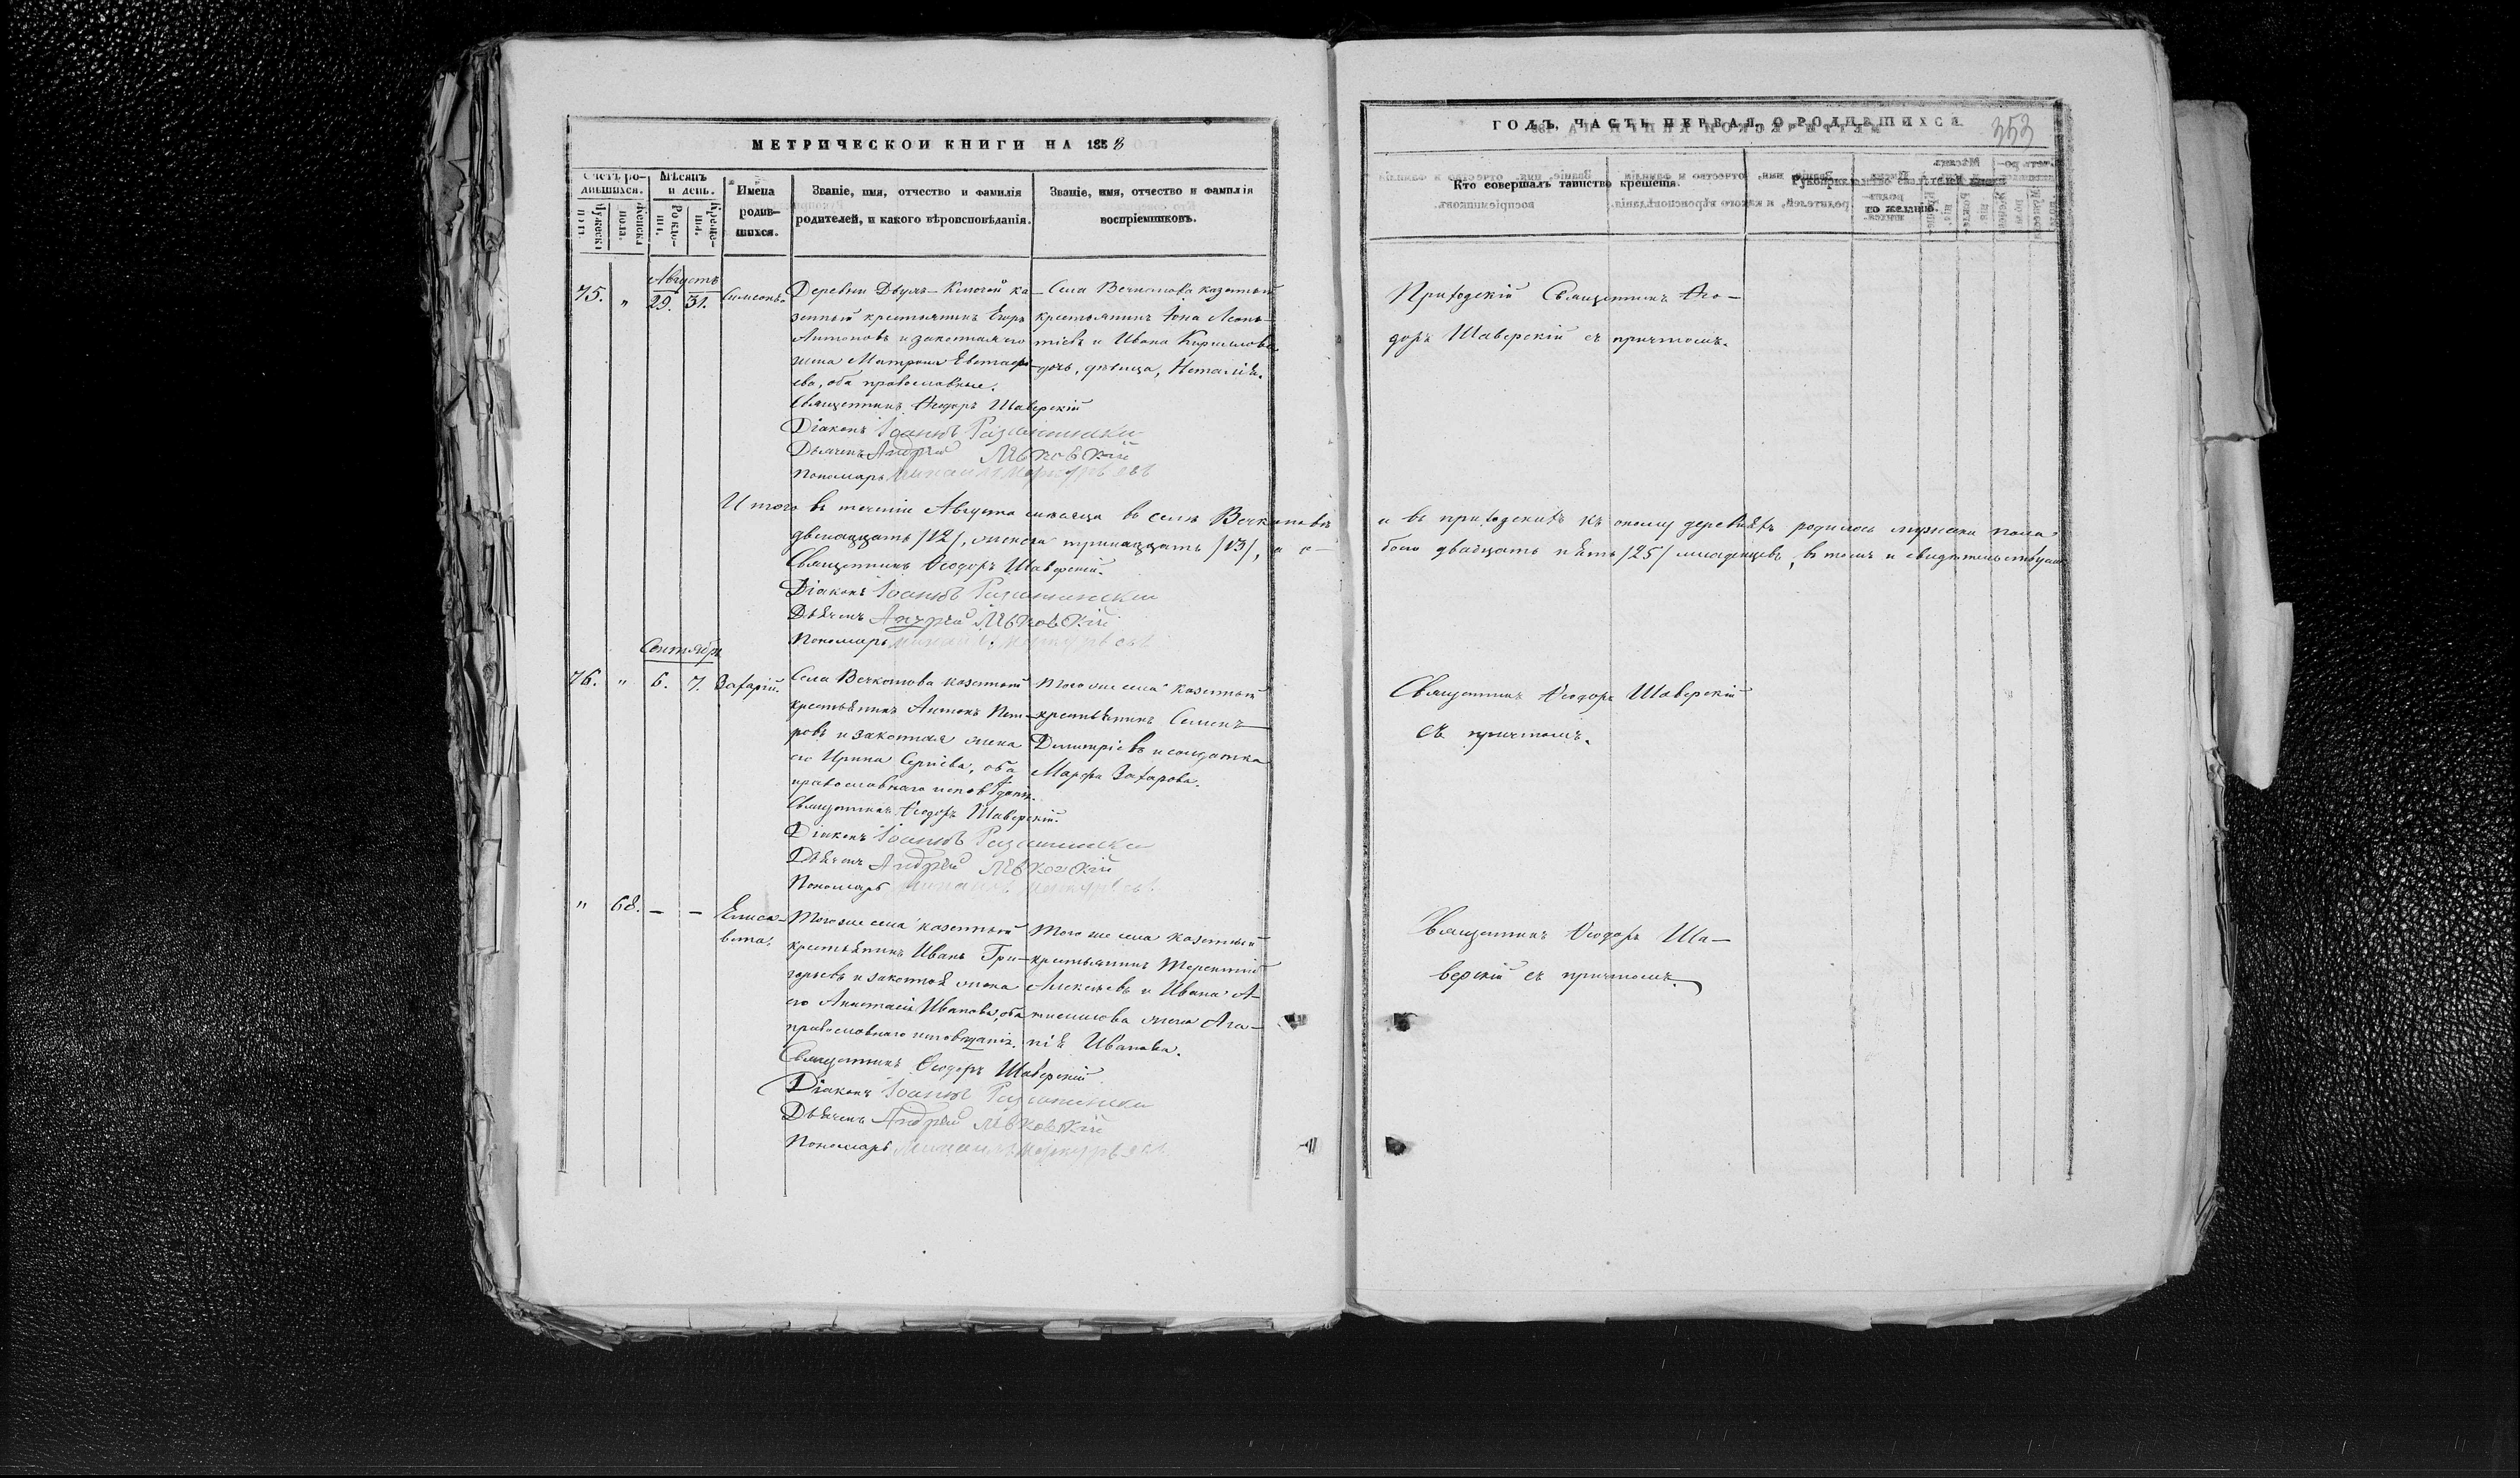 МЕТРИЧЕСКОЙ КНИГИ НА 1858
Счетъ ро-
дившихся.
Мужеска
пола.
Женска
пола.
Мѣсяцъ
и день.
Рожде-
нія.
Креще-
нія.
Имена
родив-
шихся.
Званіе, имя, отчество и фамилія
родителей, и какого вѣроисповѣданія.
Званіе, имя, отчество и фамилія
воспріемниковъ.
Августъ
75. " 29. 31. Симеонъ.
Деревни Двухъ-Ключей ка-
зенный крестьянинъ Егоръ
Антоновъ и законная его
жена Матрона Евстафі-
ева, оба православные.
Священникъ Ѳеодоръ Шаверскій
Діаконъ Іоаннъ
Дьячекъ Андрей
Пономарь Михаилъ
Села Вечканова казенный
крестьянинъ Іона Леонь-
тіевъ и Ивана Кириллова
дочь, дѣвица, Наталія.
Итого въ теченіи Августа мѣсяца въ селѣ Вечкановѣ
двенадцать /12/, женска тринадцать /13/, а е-
Священникъ Ѳеодоръ Шаверскій.
Діаконъ Іоаннъ
Дьячекъ Андрей
Пономарь Михаилъ
Сентябрь
76. " 6. 7. Захарій.
Села Вечканова казенный
крестьянинъ Антонъ Пет-
ровъ и законная жена
его Ирина Сергіева, оба
православнаго исповѣданія.
Священникъ Ѳеодоръ Шаверскій.
Діаконъ Іоаннъ
Дьячекъ Андрей
Пономарь Михаилъ
Того же села казенный
крестьянинъ Семенъ
Димитріевъ и солдатка
Марфа Захарова.
" 68. — — Елиса-
вета.
Того же села казенный
крестьянинъ Иванъ Гри-
горьевъ и законная жена
его Анастасія Иванова, оба
православнаго исповѣданія.
Священникъ Ѳеодоръ Шаверскій
Діаконъ Іоаннъ
Дьячекъ Андрей
Пономарь Михаилъ
Того же села казенный
крестьянинъ Терентій
Алексѣевъ и Ивана А-
жена Ага-
пія Иванова.
ГОДЪ, ЧАСТЬ ПЕРВАЯ, О РОДИВШИХСЯ.
353
Кто совершалъ таинство крещенія.
Рукоприкладство свидѣтелей записи
по желанію.
Приходскій Священникъ Ѳео-
доръ Шаверскій съ причтомъ.
и въ приходскихъ къ оному деревняхъ родилось мужска пола
двадцать пять /25/ младенцевъ, въ томъ и свидѣтельствуемъ
Священникъ Ѳеодоръ Шаверскій
съ причтомъ.
Священникъ Ѳеодоръ Ша-
верскій съ причтомъ.